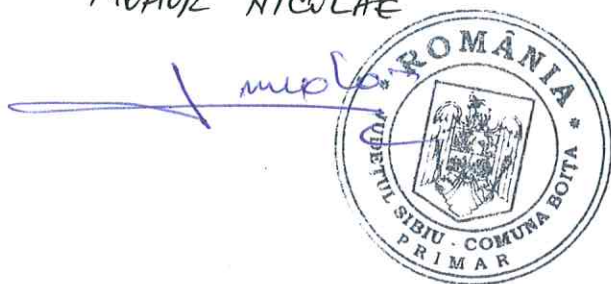 NICOLAE
* ROMÂNIA *
JUDEȚUL SIBIU - COMUNA BOIȚA
PRIMAR